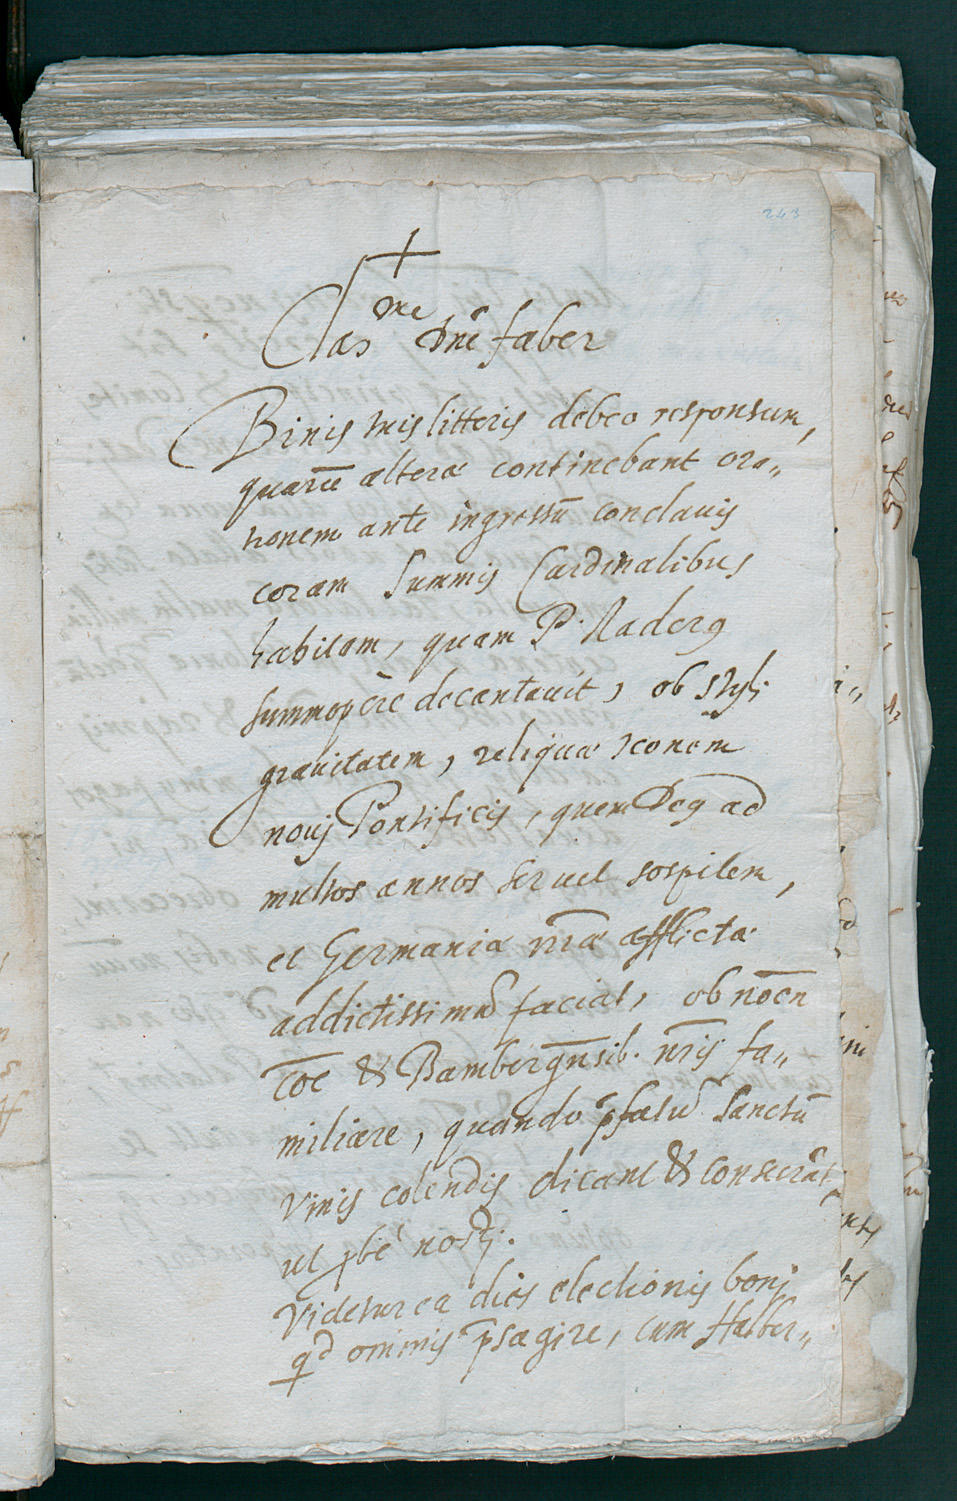 243
+
Clas.me Dne faber
Binis tuis litteris debeo responsum,
quarū alterae continebant ora„
tionem ante ingressū conclauis
coram Summis Cardinalibus
habitam, quam P. Raderꝯ
summopere decantauit, ob styli
grauitatem, reliquae Iconem
noui Pontificis, quem Deꝯ ad
multos annos seruet sospitem,
et Germaniae nrae afflictae
addictissimū faciat, ob nomen
toti & Bambergensib. nris fa„
miliare, quando pfatū Sanctū
colendis dicant & consecrāt
ut probe nosti.
Videtur ea dies electionis boni
qd ominis psagire, cum Halber„